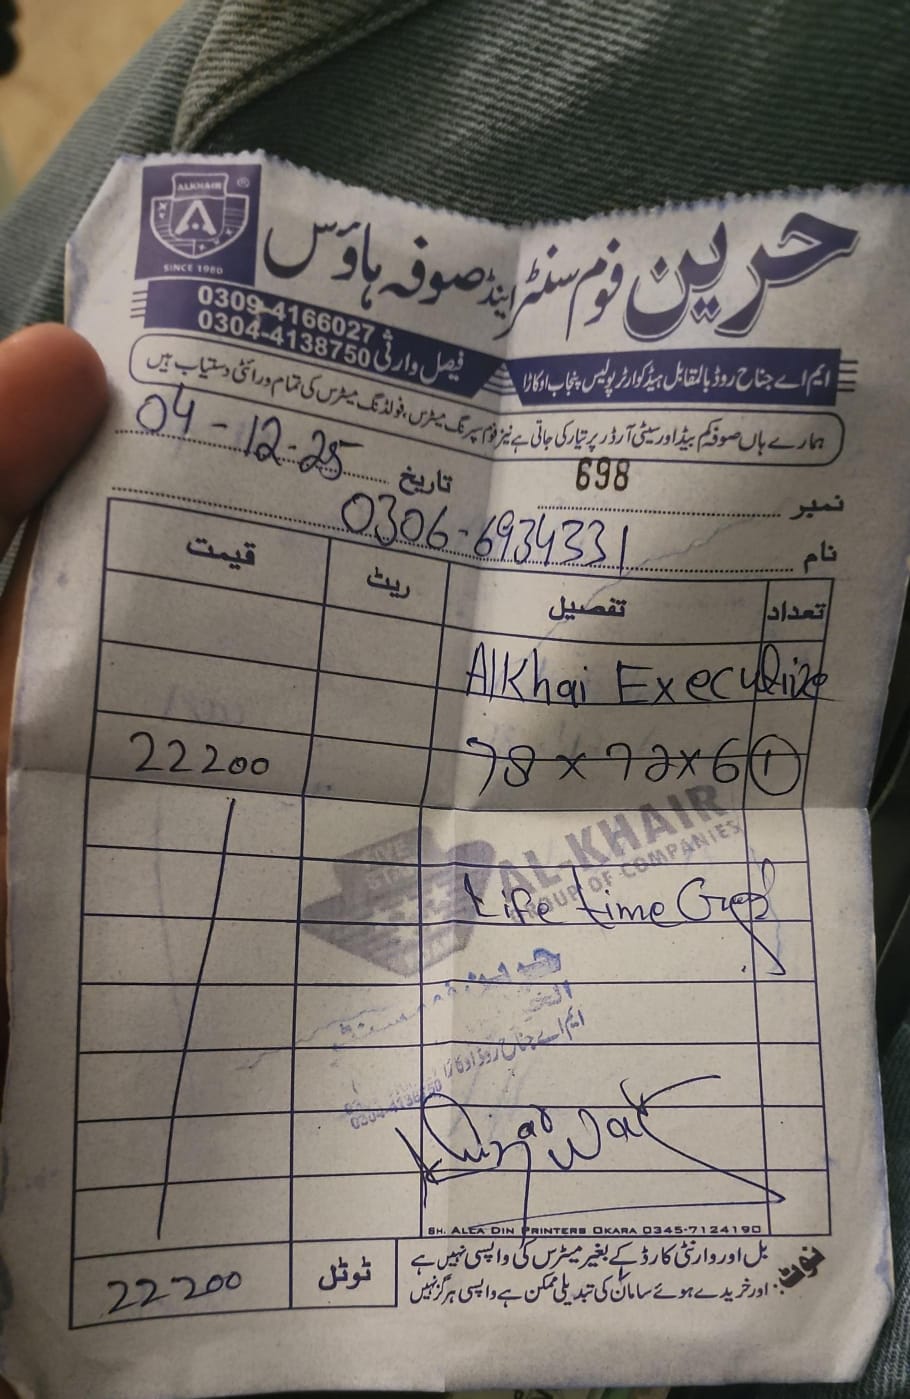 ALKHAIR ®
SINCE 1980
حرین فوم سنٹر اینڈ صوفہ ہاؤس
0309-4166027
فیصل وارثی 0304-4138750
ایم اے جناح روڈ بالمقابل ہیڈ کوارٹر پولیس پنجاب اوکاڑا
ہمارے ہاں صوفہ کم بیڈ اور سیٹی آرڈر پر تیار کی جاتی ہے نیز فوم سپرنگ میٹرس، فولڈنگ میٹرس کی تمام ورائٹی دستیاب ہیں
نمبر 698
تاریخ 04-12-25
نام 0306-6934331
تعداد تفصیل ریٹ قیمت
Alkhai Execulize
78 x 72 x 6 1 22200
AL-KHAIR
GROUP OF COMPANIES
Life time
ایم اے جناح روڈ اوکاڑا
0304-4138750
SH. ALLA DIN PRINTERS OKARA 0345-7124190
نوٹ: بل اور وارنٹی کارڈ کے بغیر میٹرس کی واپسی نہیں ہے
اور خریدے ہوئے سامان کی تبدیلی ممکن ہے واپسی ہرگز نہیں
ٹوٹل 22200